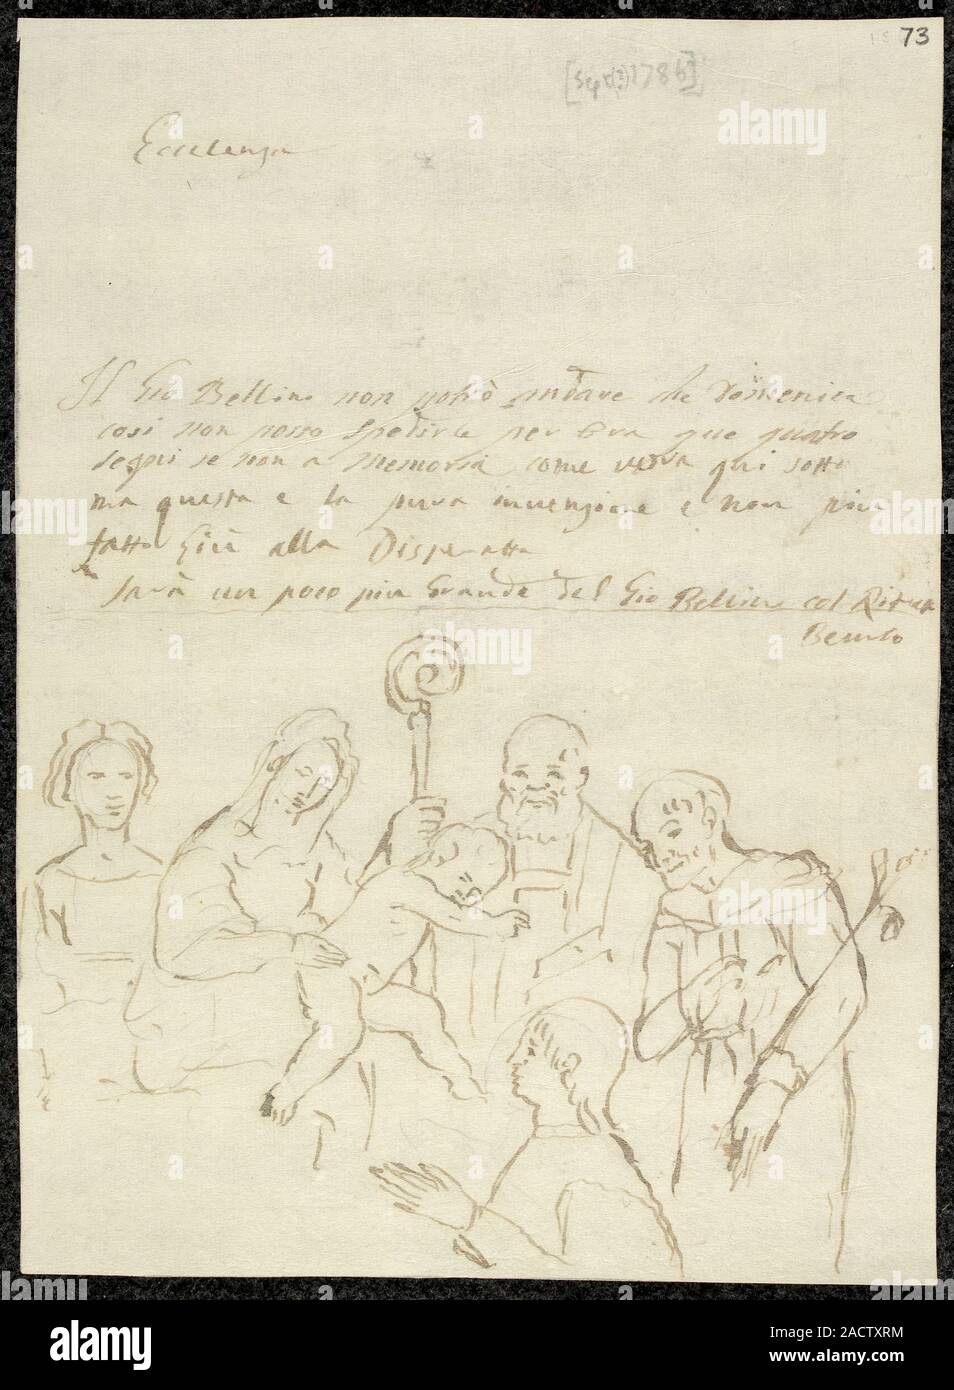 73
[Sept(?) 1786]
Eccelenza
Il Gio Bellino non potrò andare che Domenica
cosi non posso spedirle per Ora que quatro
segni se non a Memoria come qui sotto
ma questa e la pura invenzione e non piu
fatto Giù alla Disperatta
sarà un poco piu Grande del Gio Bellino col
alamy
Image ID: 2ACTXRM
www.alamy.com